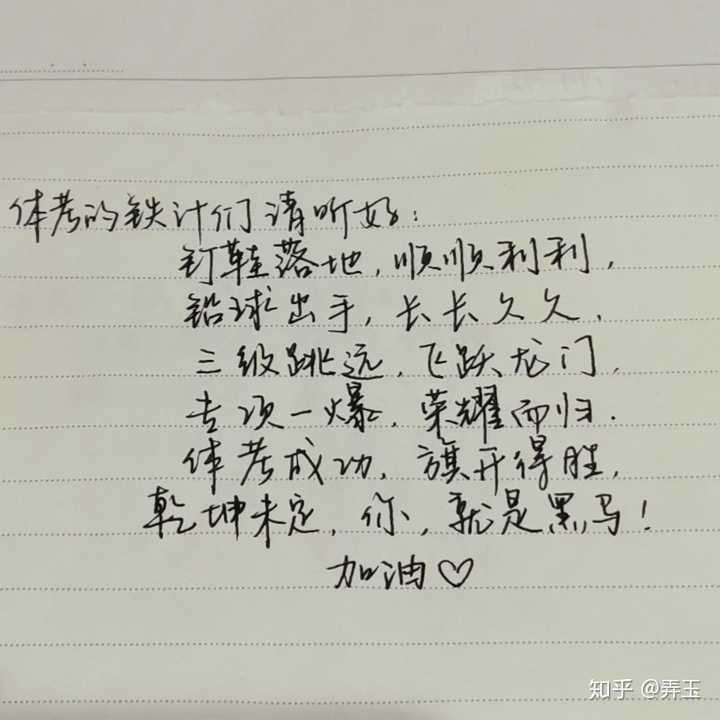 体考的铁汁们请听好：
钉鞋落地，顺顺利利，
铅球出手，长长久久，
三级跳远，飞跃龙门，
专项一爆，荣耀而归.
体考成功，旗开得胜，
乾坤未定，你，就是黑马！
加油♡
知乎 @弄玉